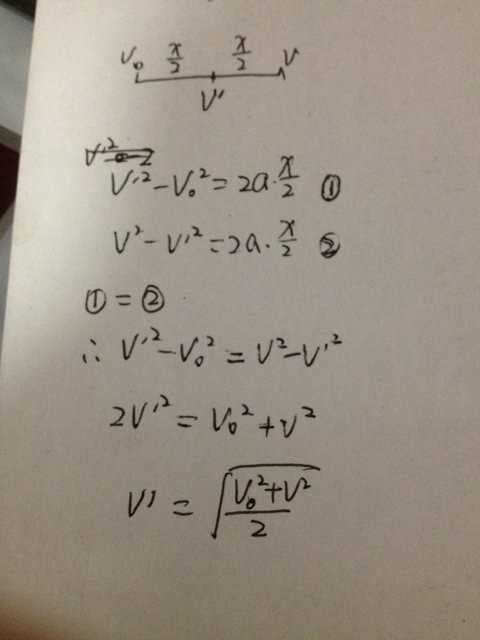 V₀ x/2 x/2 V
V'
V'² - V₀² = 2a·x/2 ①
V² - V'² = 2a·x/2 ②
① = ②
∴ V'² - V₀² = V² - V'²
2V'² = V₀² + V²
V' = √((V₀² + V²)/2)